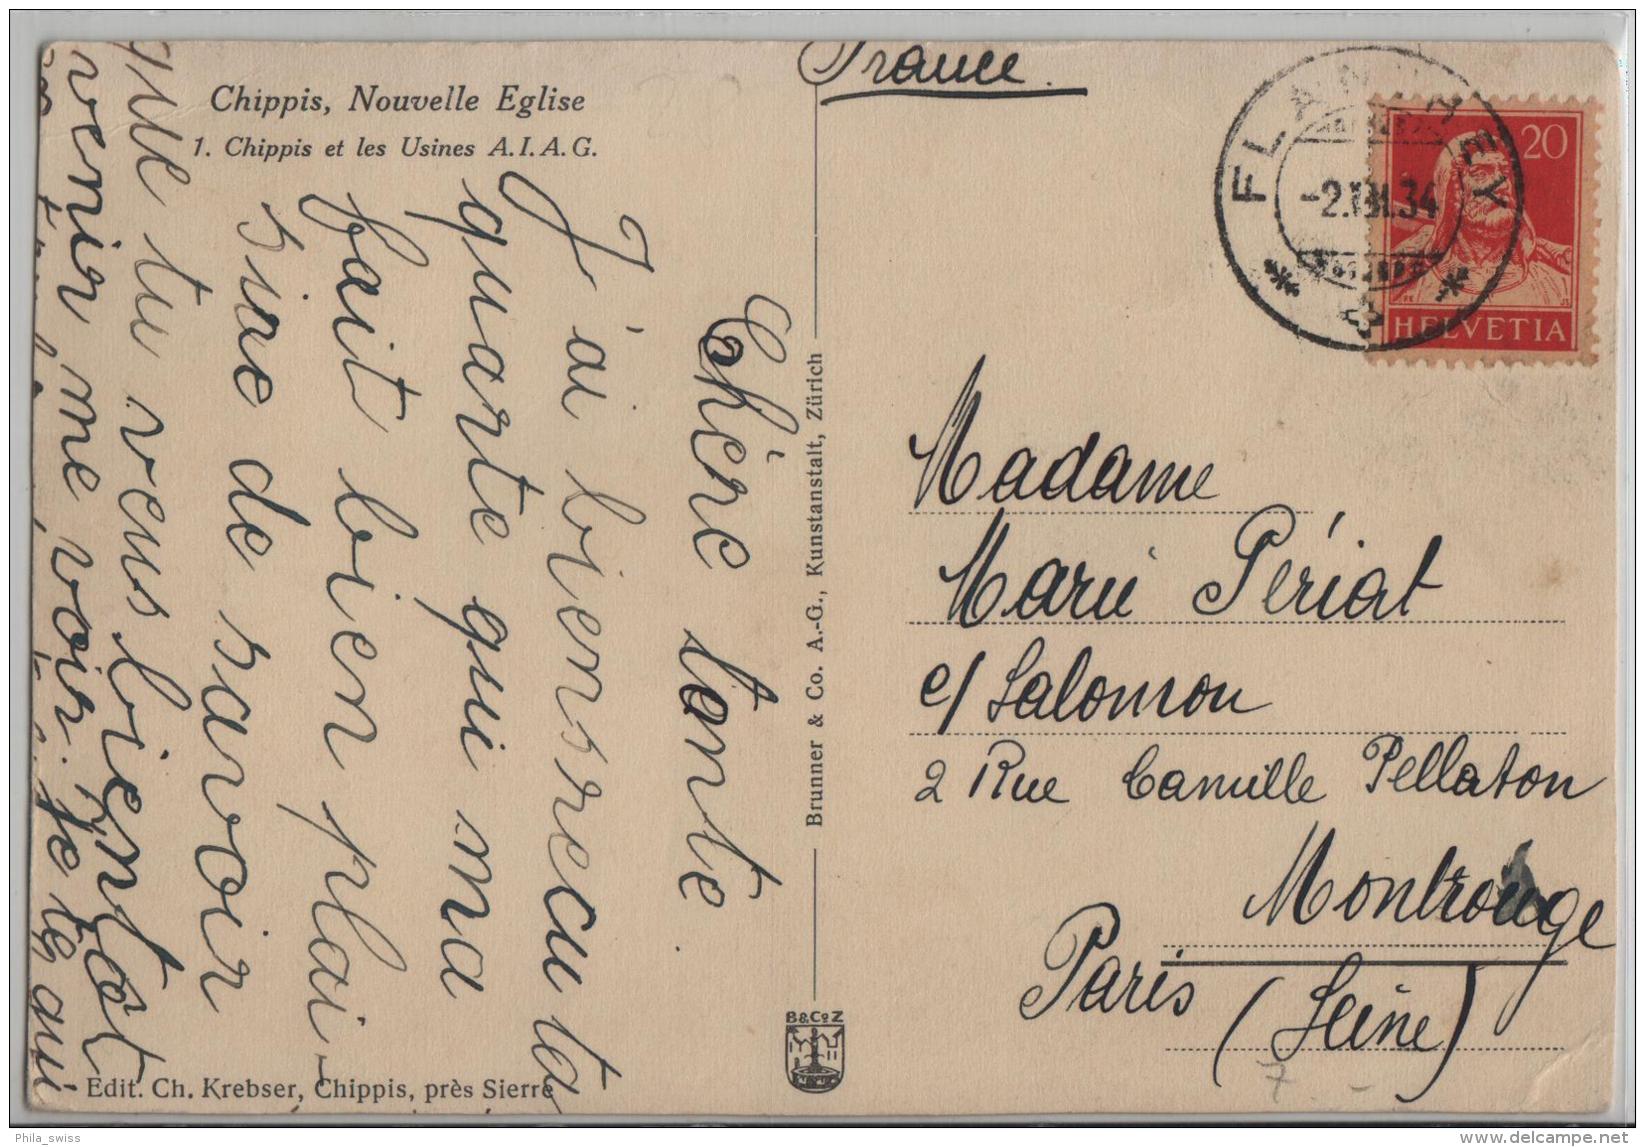 Chippis, Nouvelle Eglise
1. Chippis et les Usines A.I.A.G.
Chère tante.
J'ai bien recu ta
quarte qui ma
fait bien plai-
sire de savoir
que tu veus bientot
venir me voir. je te
France.
FLANTHEY
-2.III.34
20
HELVETIA
Madame
Marie Périat
c/ Salomon
2 Rue Camille Pellaton
Montrouge
Paris (Seine)
7
Brunner & Co. A.-G., Kunstanstalt, Zürich
B&Co Z
Edit. Ch. Krebser, Chippis, près Sierre
Phila_swiss
www.delcampe.net